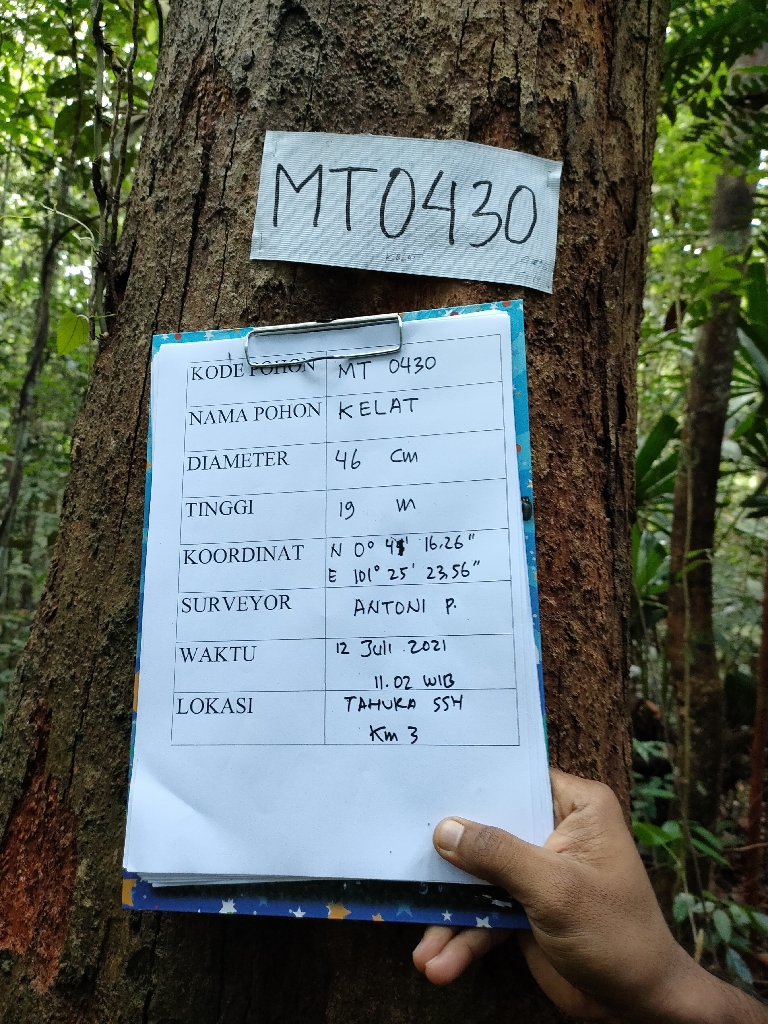 MT0430
KODE POHON MT 0430
NAMA POHON KELAT
DIAMETER 46 cm
TINGGI 19 m
KOORDINAT N 0° 41' 16.26"
E 101° 25' 23,56"
SURVEYOR ANTONI P.
WAKTU 12 Juli 2021
11.02 WIB
LOKASI TAHURA SSH
Km 3